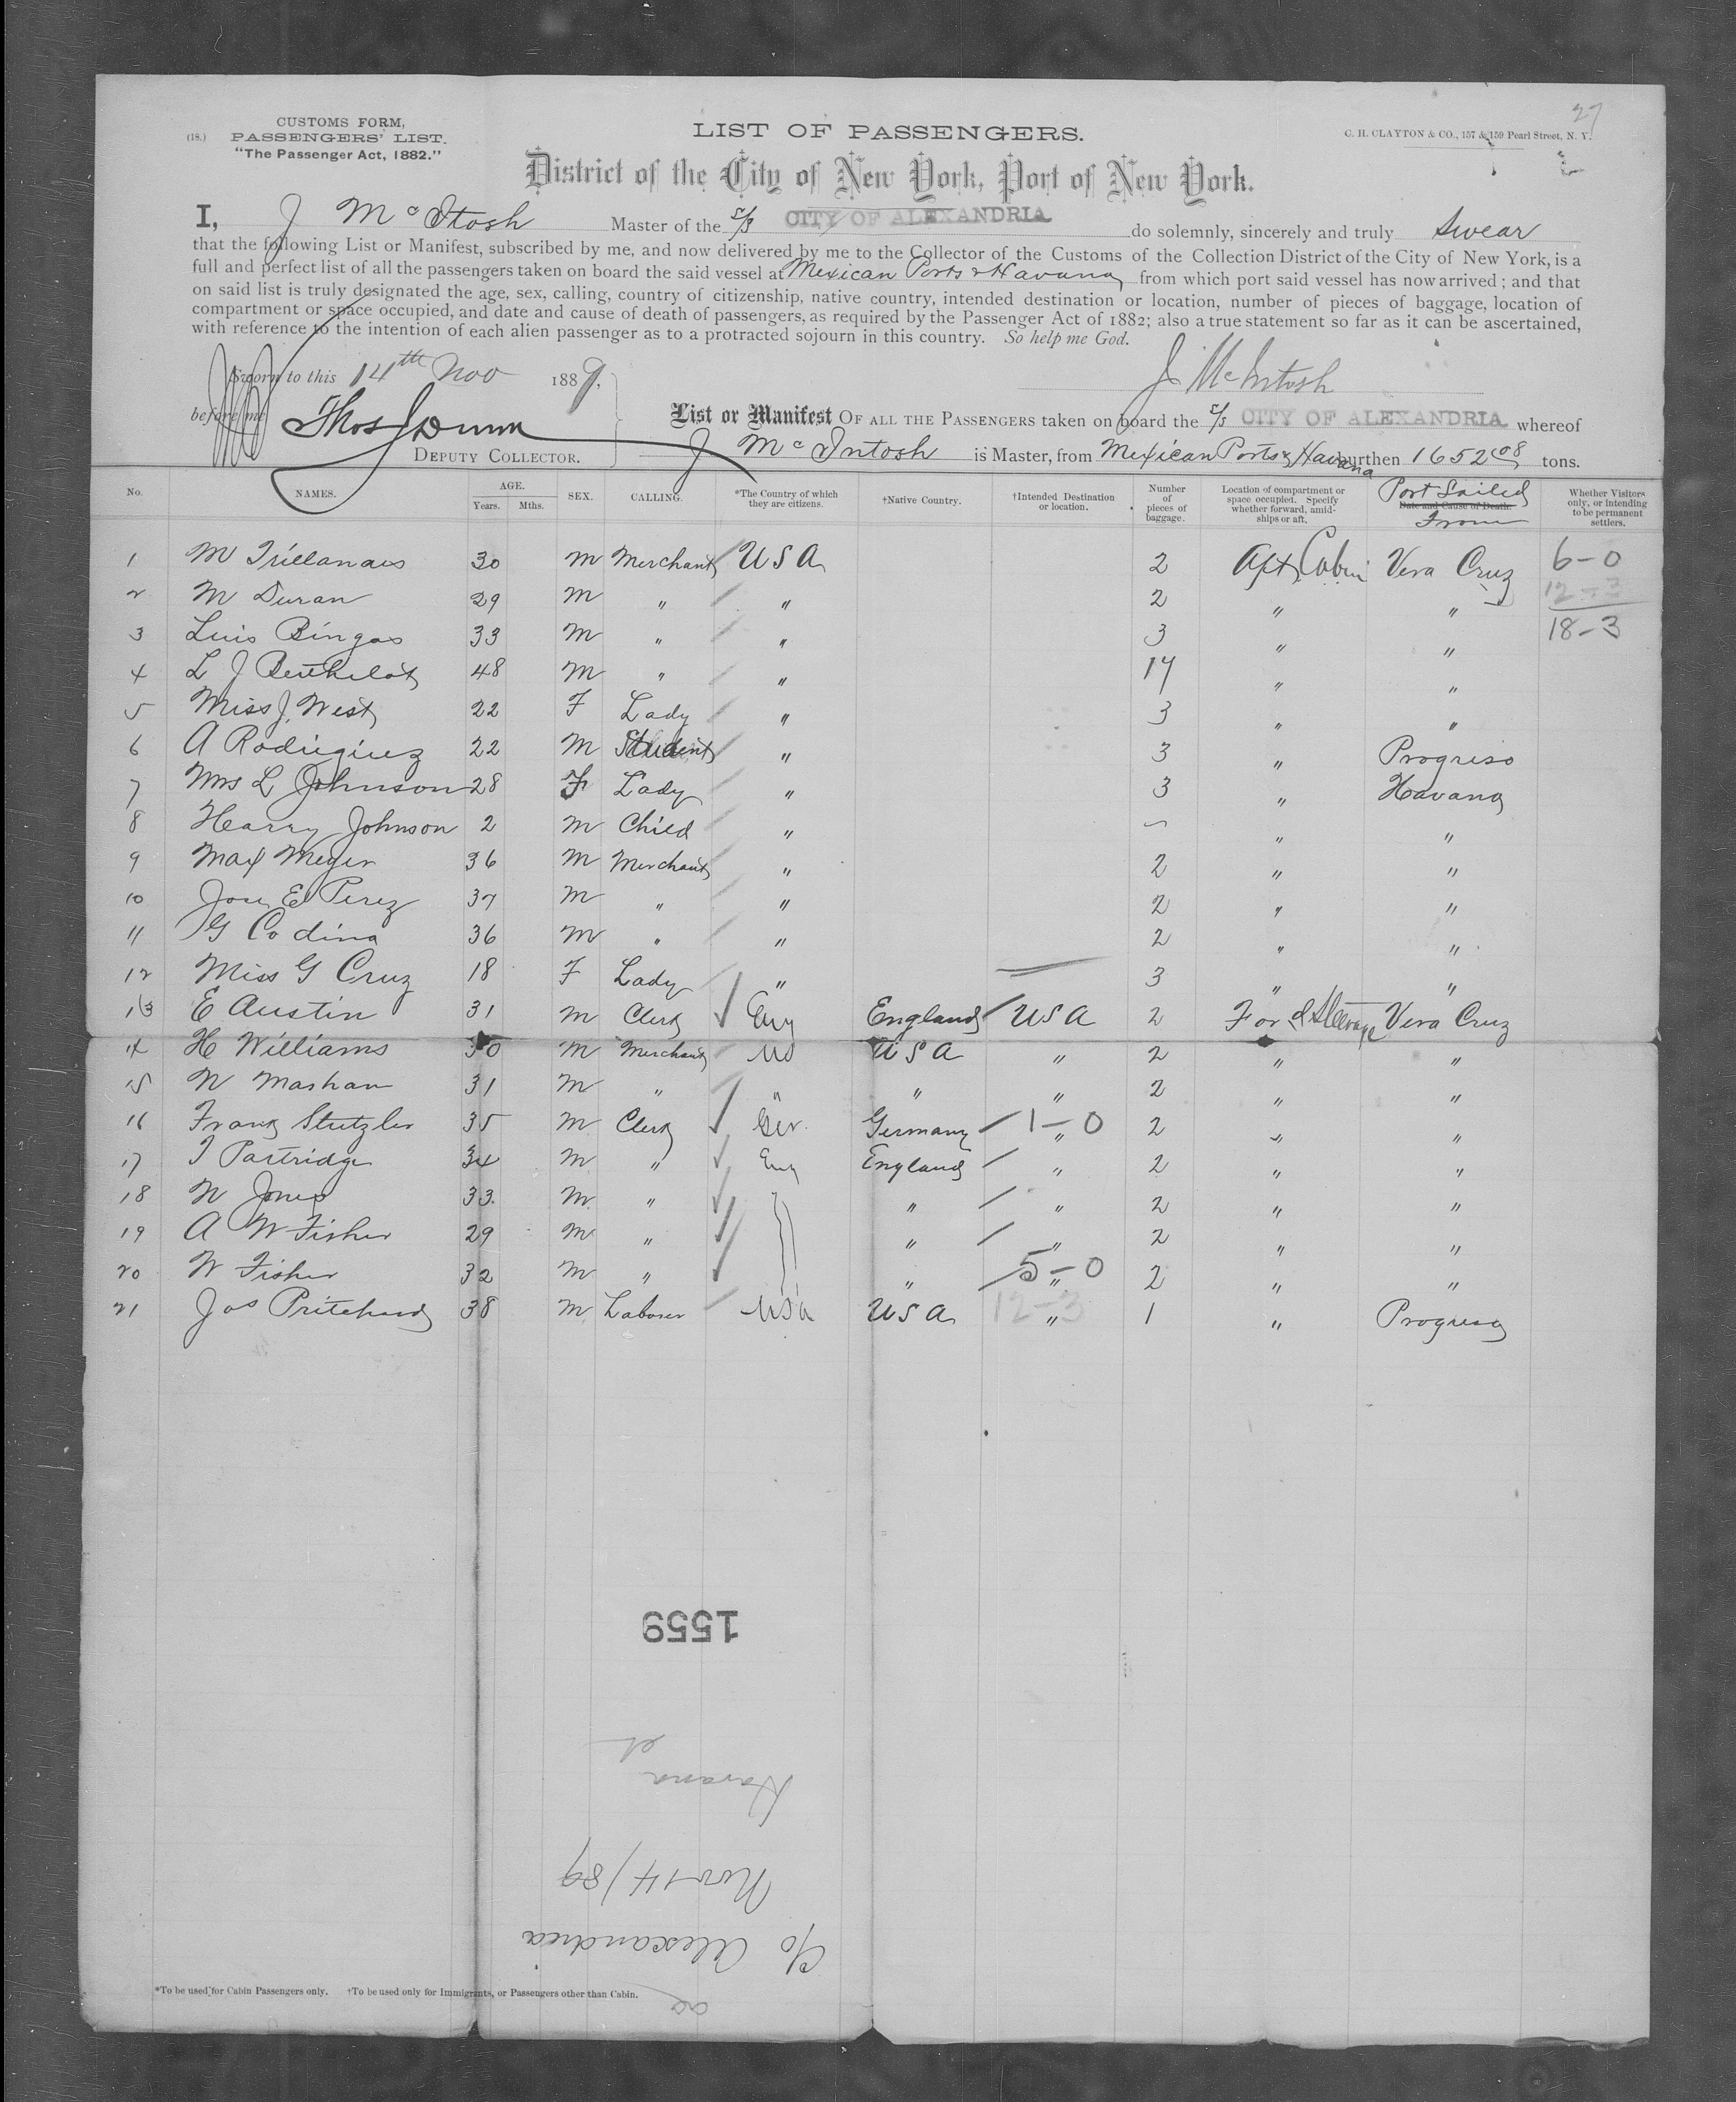 27
(18.)
CUSTOMS FORM,
PASSENGERS' LIST.
"The Passenger Act, 1882."
LIST OF PASSENGERS.
C. H. CLAYTON & CO., 157 & 159 Pearl Street, N. Y.
District of the City of New York, Port of New York.
I, J McItosh Master of the s/s CITY OF ALEXANDRIA do solemnly, sincerely and truly swear
that the following List or Manifest, subscribed by me, and now delivered by me to the Collector of the Customs of the Collection District of the City of New York, is a
full and perfect list of all the passengers taken on board the said vessel at Mexican Ports & Havana from which port said vessel has now arrived; and that
on said list is truly designated the age, sex, calling, country of citizenship, native country, intended destination or location, number of pieces of baggage, location of
compartment or space occupied, and date and cause of death of passengers, as required by the Passenger Act of 1882; also a true statement so far as it can be ascertained,
with reference to the intention of each alien passenger as to a protracted sojourn in this country. So help me God.
Sworn to this 14th Nov 1889, J McIntosh
before me Thos J Dunn
DEPUTY COLLECTOR.
List or Manifest OF ALL THE PASSENGERS taken on board the s/s CITY OF ALEXANDRIA whereof
J McIntosh is Master, from Mexican Ports & Havana burthen 1652 08 tons.
No. NAMES. AGE. Years. Mths. SEX. CALLING. *The Country of which they are citizens. †Native Country. †Intended Destination or location. Number of pieces of baggage. Location of compartment or space occupied. Specify whether forward, amidships or aft. Date and Cause of Death. Port Sailed From Whether Visitors only, or intending to be permanent settlers.
1 M Trillanaus 30 M Merchant USA 2 Aft Cabin Vera Cruz 6-0
2 M Duran 29 M " " 2 " " 12-3
3 Luis Bingas 33 M " " 3 " " 18-3
4 L J Berthelot 48 M " " 17 " "
5 Miss J. West 22 F Lady " 3 " "
6 A Rodriguez 22 M Student " 3 " Progreso
7 Mrs L Johnson 28 F Lady " 3 " Havana
8 Harry Johnson 2 M Child " – " "
9 Max Meyer 36 M Merchant " 2 " "
10 Jose E Perez 37 M " " 2 " "
11 G Codina 36 M " " 2 " "
12 Miss G Cruz 18 F Lady " 3 " "
13 E Austin 31 M Clerk Eng England USA 2 For'd Steerage Vera Cruz
14 H Williams 30 M Merchant US USA " 2 " "
15 N Mashan 31 M " " " " 2 " "
16 Frank Stutzler 35 M Clerk Ger. Germany 1-0 " 2 " "
17 T Partridge 34 M " Eng England " 2 " "
18 N Jones 33 M " " " 2 " "
19 A W Fisher 29 M " " " 2 " "
20 W Fisher 32 M " " 5-0 " 2 " "
21 Jas Pritchard 38 M Laborer USA USA 12-3 " 1 " Progreso
1559
Havana
Nov 14/89
c/o Alexandria
*To be used for Cabin Passengers only. †To be used only for Immigrants, or Passengers other than Cabin.